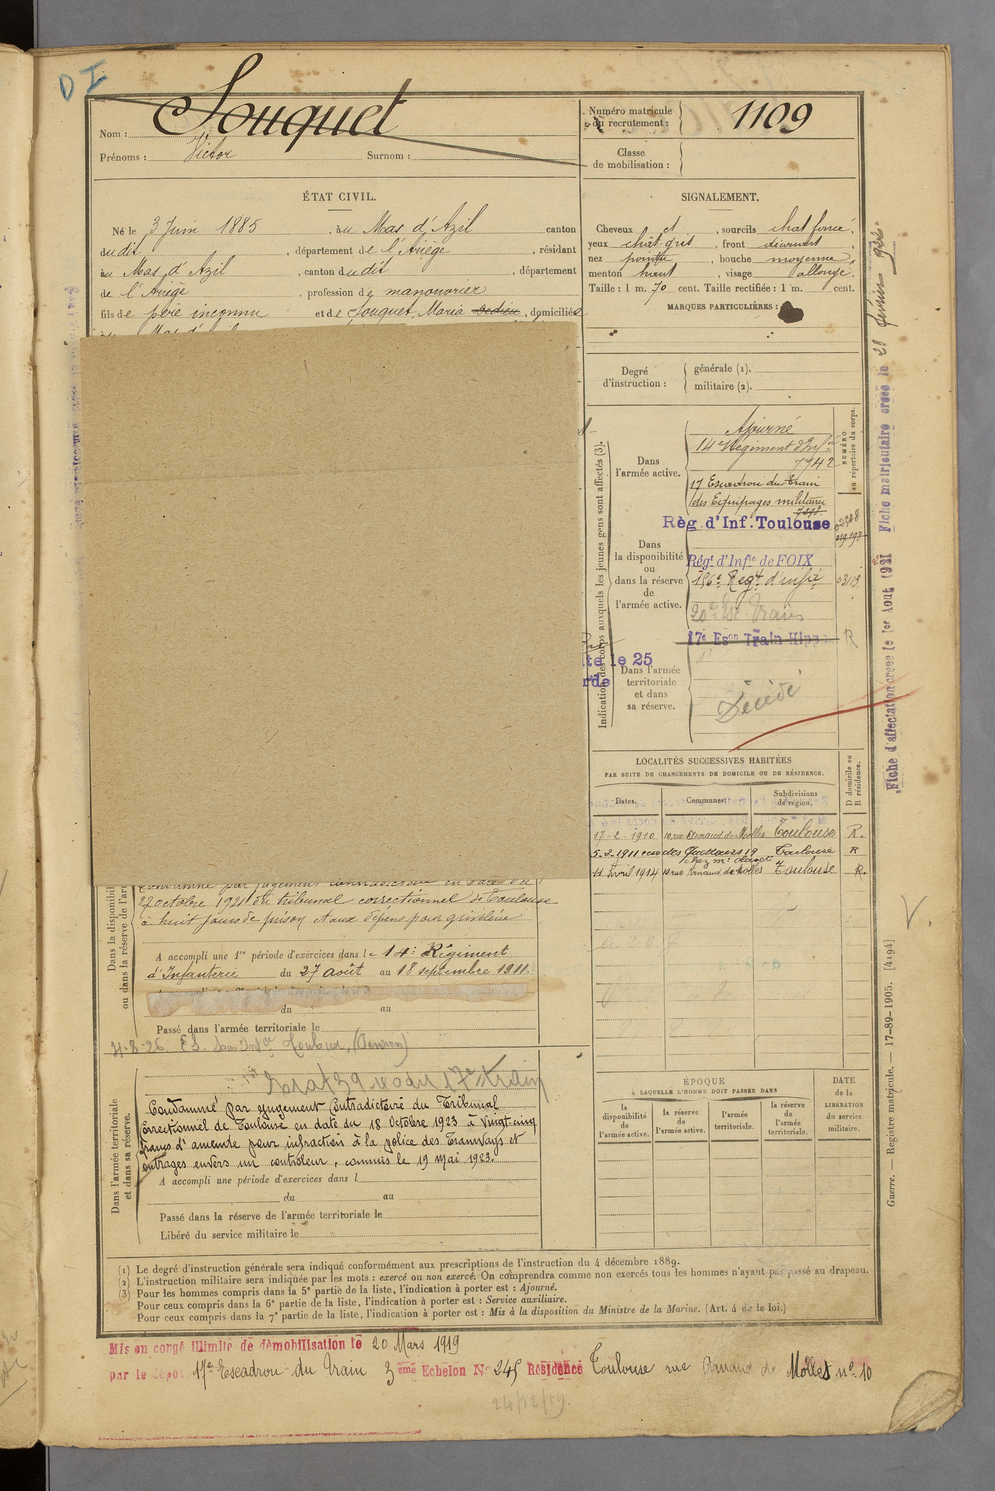 D I
Nom : Souquet
Prénoms : Victor Surnom :
Numéro matricule du recrutement : 1109
Classe de mobilisation :
ÉTAT CIVIL.
Né le 3 Juin 1885, au Mas d'Azil canton
dudit, département de l'Ariège, résidant
au Mas d'Azil, canton dudit, département
de l'Ariège, profession de manouvrier
fils de père inconnu et de Souquet, Maria, domiciliés
SIGNALEMENT.
Cheveux et, sourcils chat foncé,
yeux chât. gris, front découvert,
nez pointu, bouche moyenne,
menton haut, visage allongé.
Taille : 1 m. 70 cent. Taille rectifiée : 1 m. cent.
MARQUES PARTICULIÈRES :
Degré d'instruction : générale (1). militaire (2).
Indication des corps auxquels les jeunes gens sont affectés (3).
NUMÉRO au répertoire du corps.
Dans l'armée active.
Ajourné
14e Régiment d'Infie
7942
17 Escadron du Train
des Equipages militaires
Règ. d'Inf. Toulouse
Dans la disponibilité ou dans la réserve de l'armée active.
Régt. d'Infie de FOIX
03113
17e Eson Train Hippo R
le 25
Dans l'armée territoriale et dans sa réserve.
Décédé
LOCALITÉS SUCCESSIVES HABITÉES
PAR SUITE DE CHANGEMENTS DE DOMICILE OU DE RÉSIDENCE.
Dates. Communes. Subdivisions de région. D domicile ou R résidence.
17-2-1910 10 rue Arnaud de Molles Toulouse R.
5-3-1911 19 Toulouse R
11 Avril 1914 10 rue Arnaud de Molles Toulouse R.
Dans la disponibilité ou dans la réserve de l'armée
Condamné par jugement contradictoire en date du
27 octobre 1921 du tribunal correctionnel de Toulouse
à huit jours de prison et aux dépens pour grivèlerie
A accompli une 1re période d'exercices dans le 14e Régiment
d'Infanterie du 27 août au 18 septembre 1911.
du au
Passé dans l'armée territoriale le
Dans l'armée territoriale et dans sa réserve.
Condamné par jugement Contradictoire du Tribunal
Correctionnel de Toulouse en date du 18 Octobre 1923 à Vingt-cinq
francs d'amende pour infraction à la police des Tramways et
outrages envers un contrôleur, commis le 19 Mai 1923.
A accompli une période d'exercices dans l
du au
Passé dans la réserve de l'armée territoriale le
Libéré du service militaire le
ÉPOQUE
À LAQUELLE L'HOMME DOIT PASSER DANS
la disponibilité de l'armée active. la réserve de l'armée active. l'armée territoriale. la réserve de l'armée territoriale.
DATE de la LIBÉRATION du service militaire.
(1) Le degré d'instruction générale sera indiqué conformément aux prescriptions de l'instruction du 4 décembre 1889.
(2) L'instruction militaire sera indiquée par les mots : exercé ou non exercé. On comprendra comme non exercés tous les hommes n'ayant pas passé au drapeau.
(3) Pour les hommes compris dans la 5e partie de la liste, l'indication à porter est : Ajourné.
Pour ceux compris dans la 6e partie de la liste, l'indication à porter est : Service auxiliaire.
Pour ceux compris dans la 7e partie de la liste, l'indication à porter est : Mis à la disposition du Ministre de la Marine. (Art. 4 de le loi.)
Mis en congé illimité de démobilisation le 20 Mars 1919
par le dépôt 17e Escadron du Train 3ème Echelon No 245 Résidence Toulouse rue Arnaud de Molles no 10
24/12/19.
Fiche d'affectation créée le 1er Août 1921 Fiche matriculaire créée le 28 février 922
Guerre. — Registre matricule. — 17-89-1905. [4194]